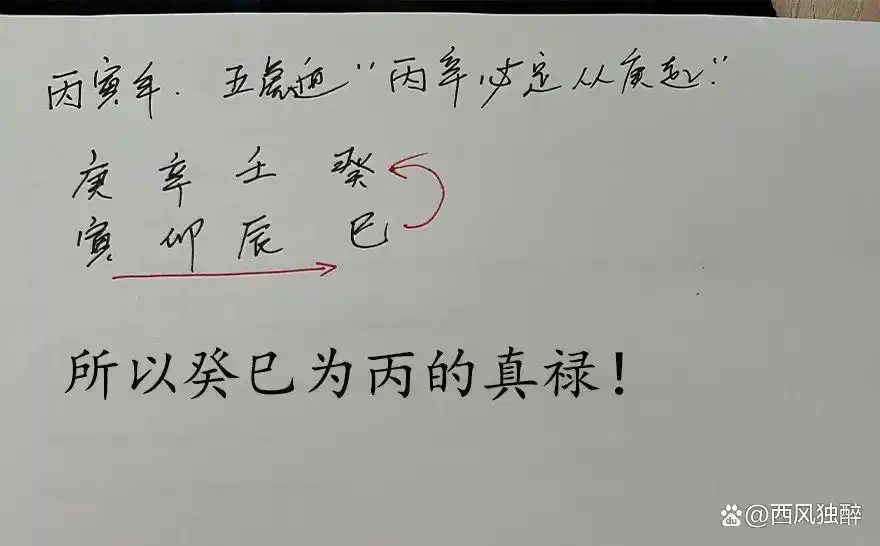 丙寅年. 五虎遁“丙辛必定从庚起.”
庚 辛 壬 癸
寅 卯 辰 巳
所以癸巳为丙的真禄!
@西风独醉